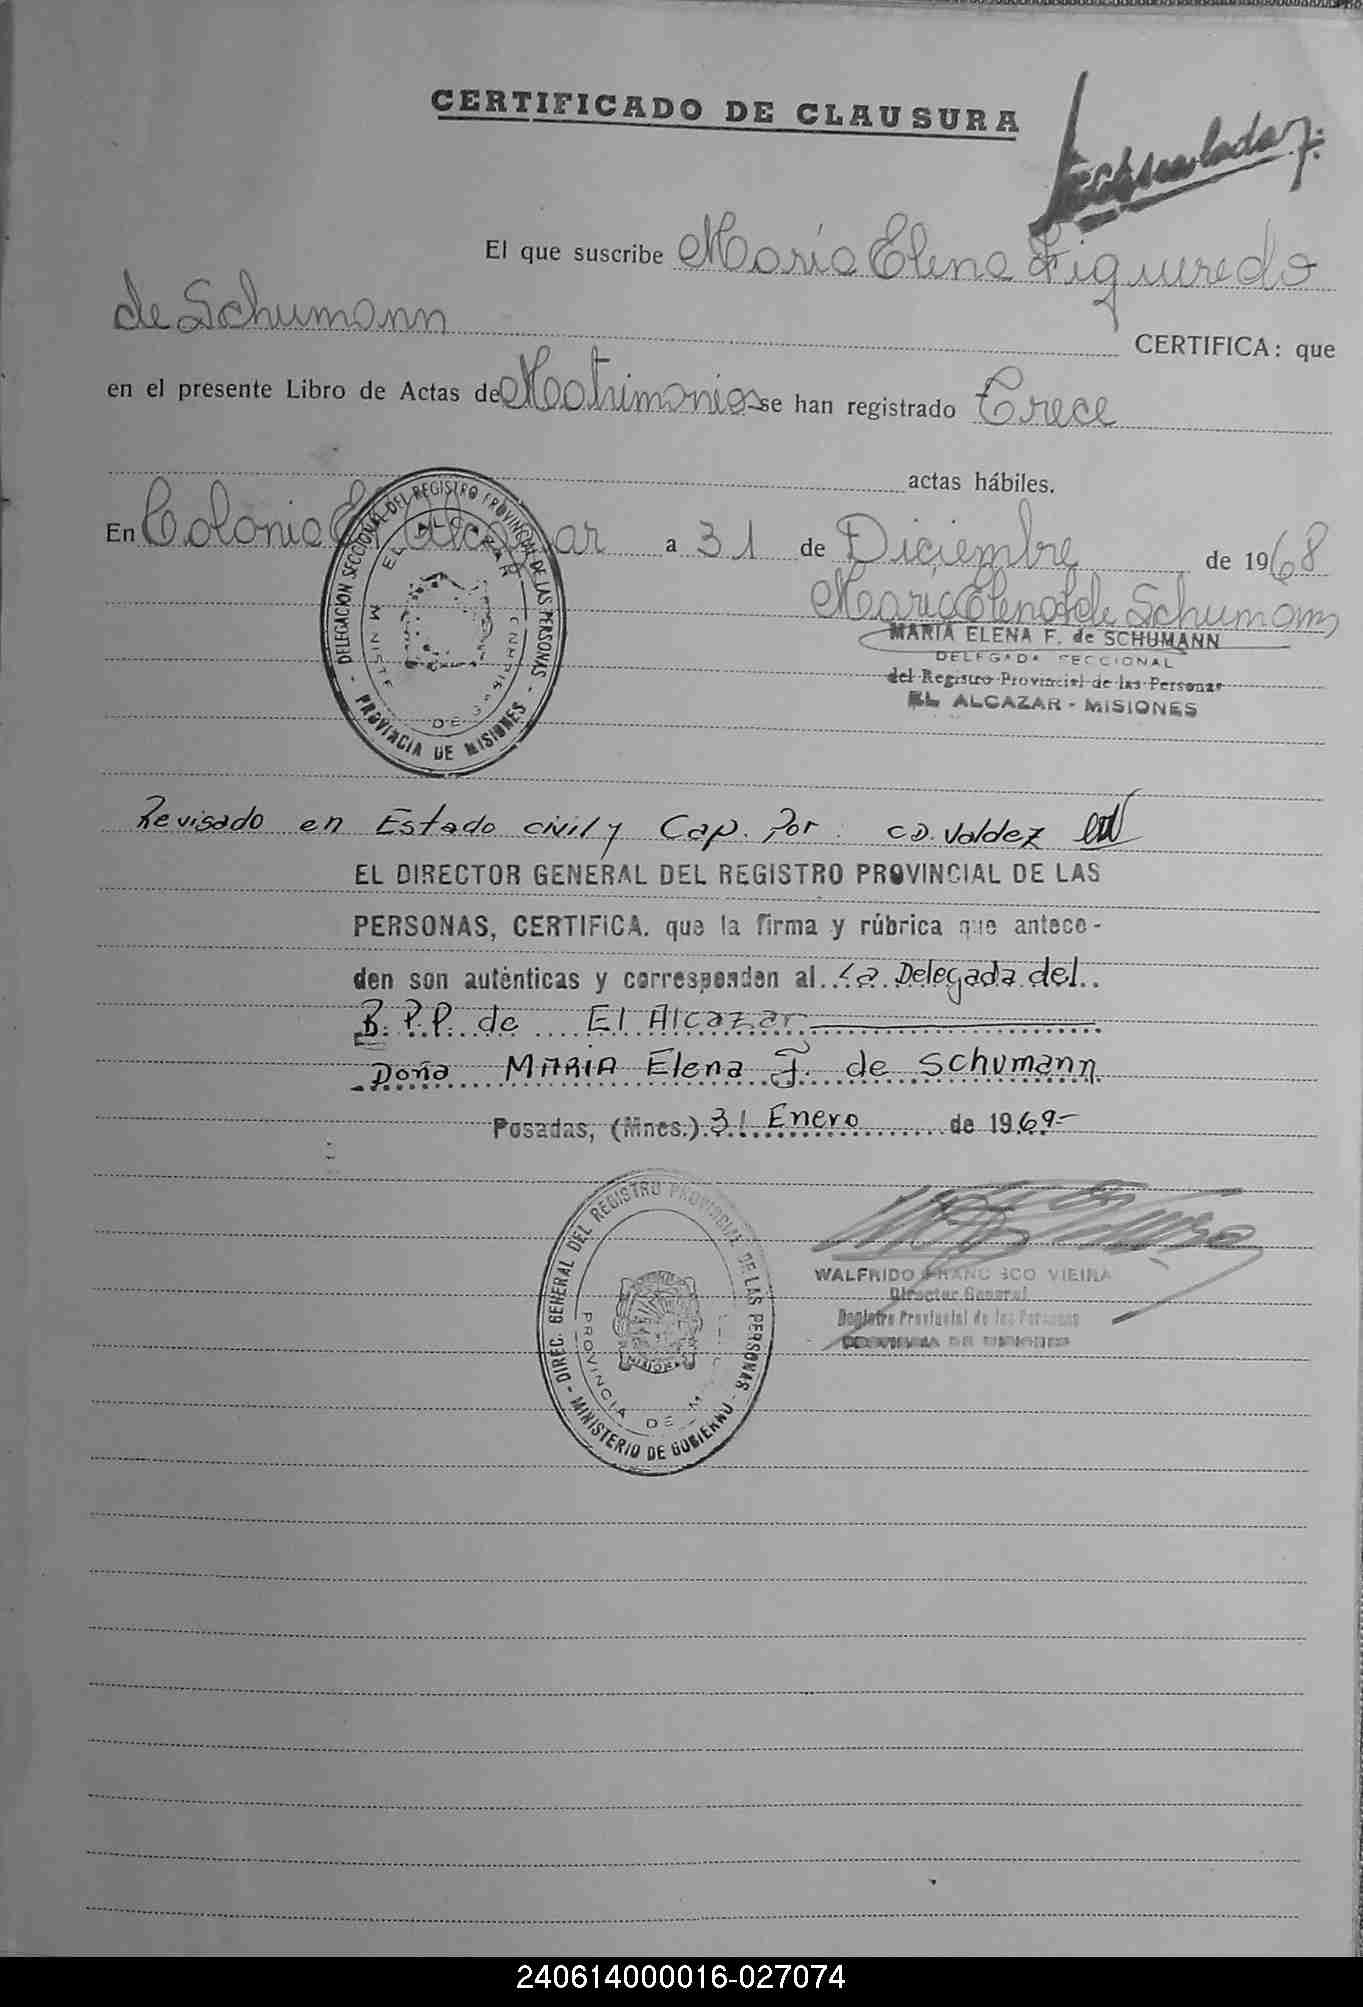 CERTIFICADO DE CLAUSURA
El que suscribe Maria Elena Figueredo
de Schumann CERTIFICA: que
en el presente Libro de Actas de Matrimonios se han registrado Trece
actas hábiles.
En Colonia El Alcazar a 31 de Diciembre de 1968
Maria Elena F de Schumann
MARIA ELENA F. de SCHUMANN
DELEGADA SECCIONAL
del Registro Provincial de las Personas
EL ALCAZAR - MISIONES
DELEGACION SECCIONAL DEL REGISTRO PROVINCIAL DE LAS PERSONAS - PROVINCIA DE MISIONES -
EL ALCAZAR
Revisado en Estado civil y Cap. Por: CD. Valdez
EL DIRECTOR GENERAL DEL REGISTRO PROVINCIAL DE LAS
PERSONAS, CERTIFICA. que la firma y rúbrica que antece-
den son auténticas y corresponden al La Delegada del
R.P.P. de El Alcazar
Doña MARIA Elena F. de Schumann
Posadas, (Mnes.) 31 Enero de 1969-
DIREC. GENERAL DEL REGISTRO PROVINCIAL DE LAS PERSONAS - MINISTERIO DE GOBIERNO -
PROVINCIA DE
MISIONES
WALFRIDO FRANCISCO VIEIRA
Director General
Registro Provincial de las Personas
PROVINCIA DE MISIONES
240614000016-027074